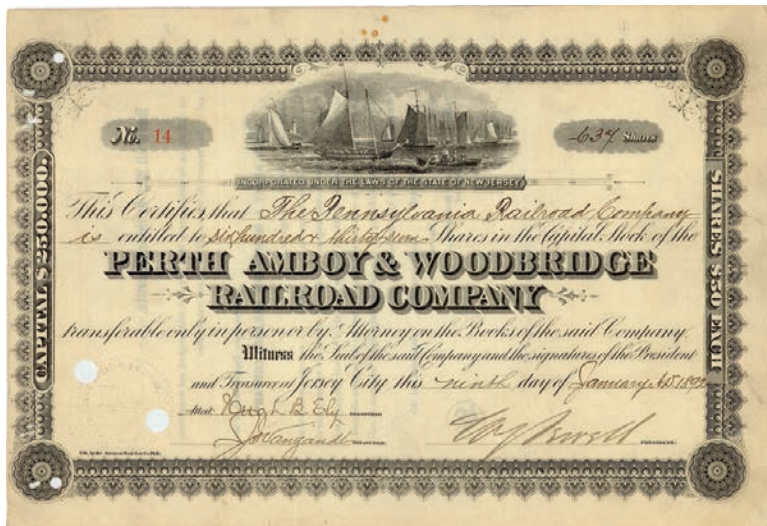 No. 14
637 Shares
INCORPORATED UNDER THE LAWS OF THE STATE OF NEW JERSEY
CAPITAL $250.000.
SHARES $50 EACH
This Certifies that The Pennsylvania Railroad Company
is entitled to six hundred & thirty seven Shares in the Capital Stock of the
PERTH AMBOY & WOODBRIDGE
RAILROAD COMPANY
transferable only in person or by Attorney on the Books of the said Company.
Witness the Seal of the said Company and the signatures of the President
and Treasurer at Jersey City this ninth day of January
Attest Hugh B. Ely
PRESIDENT.